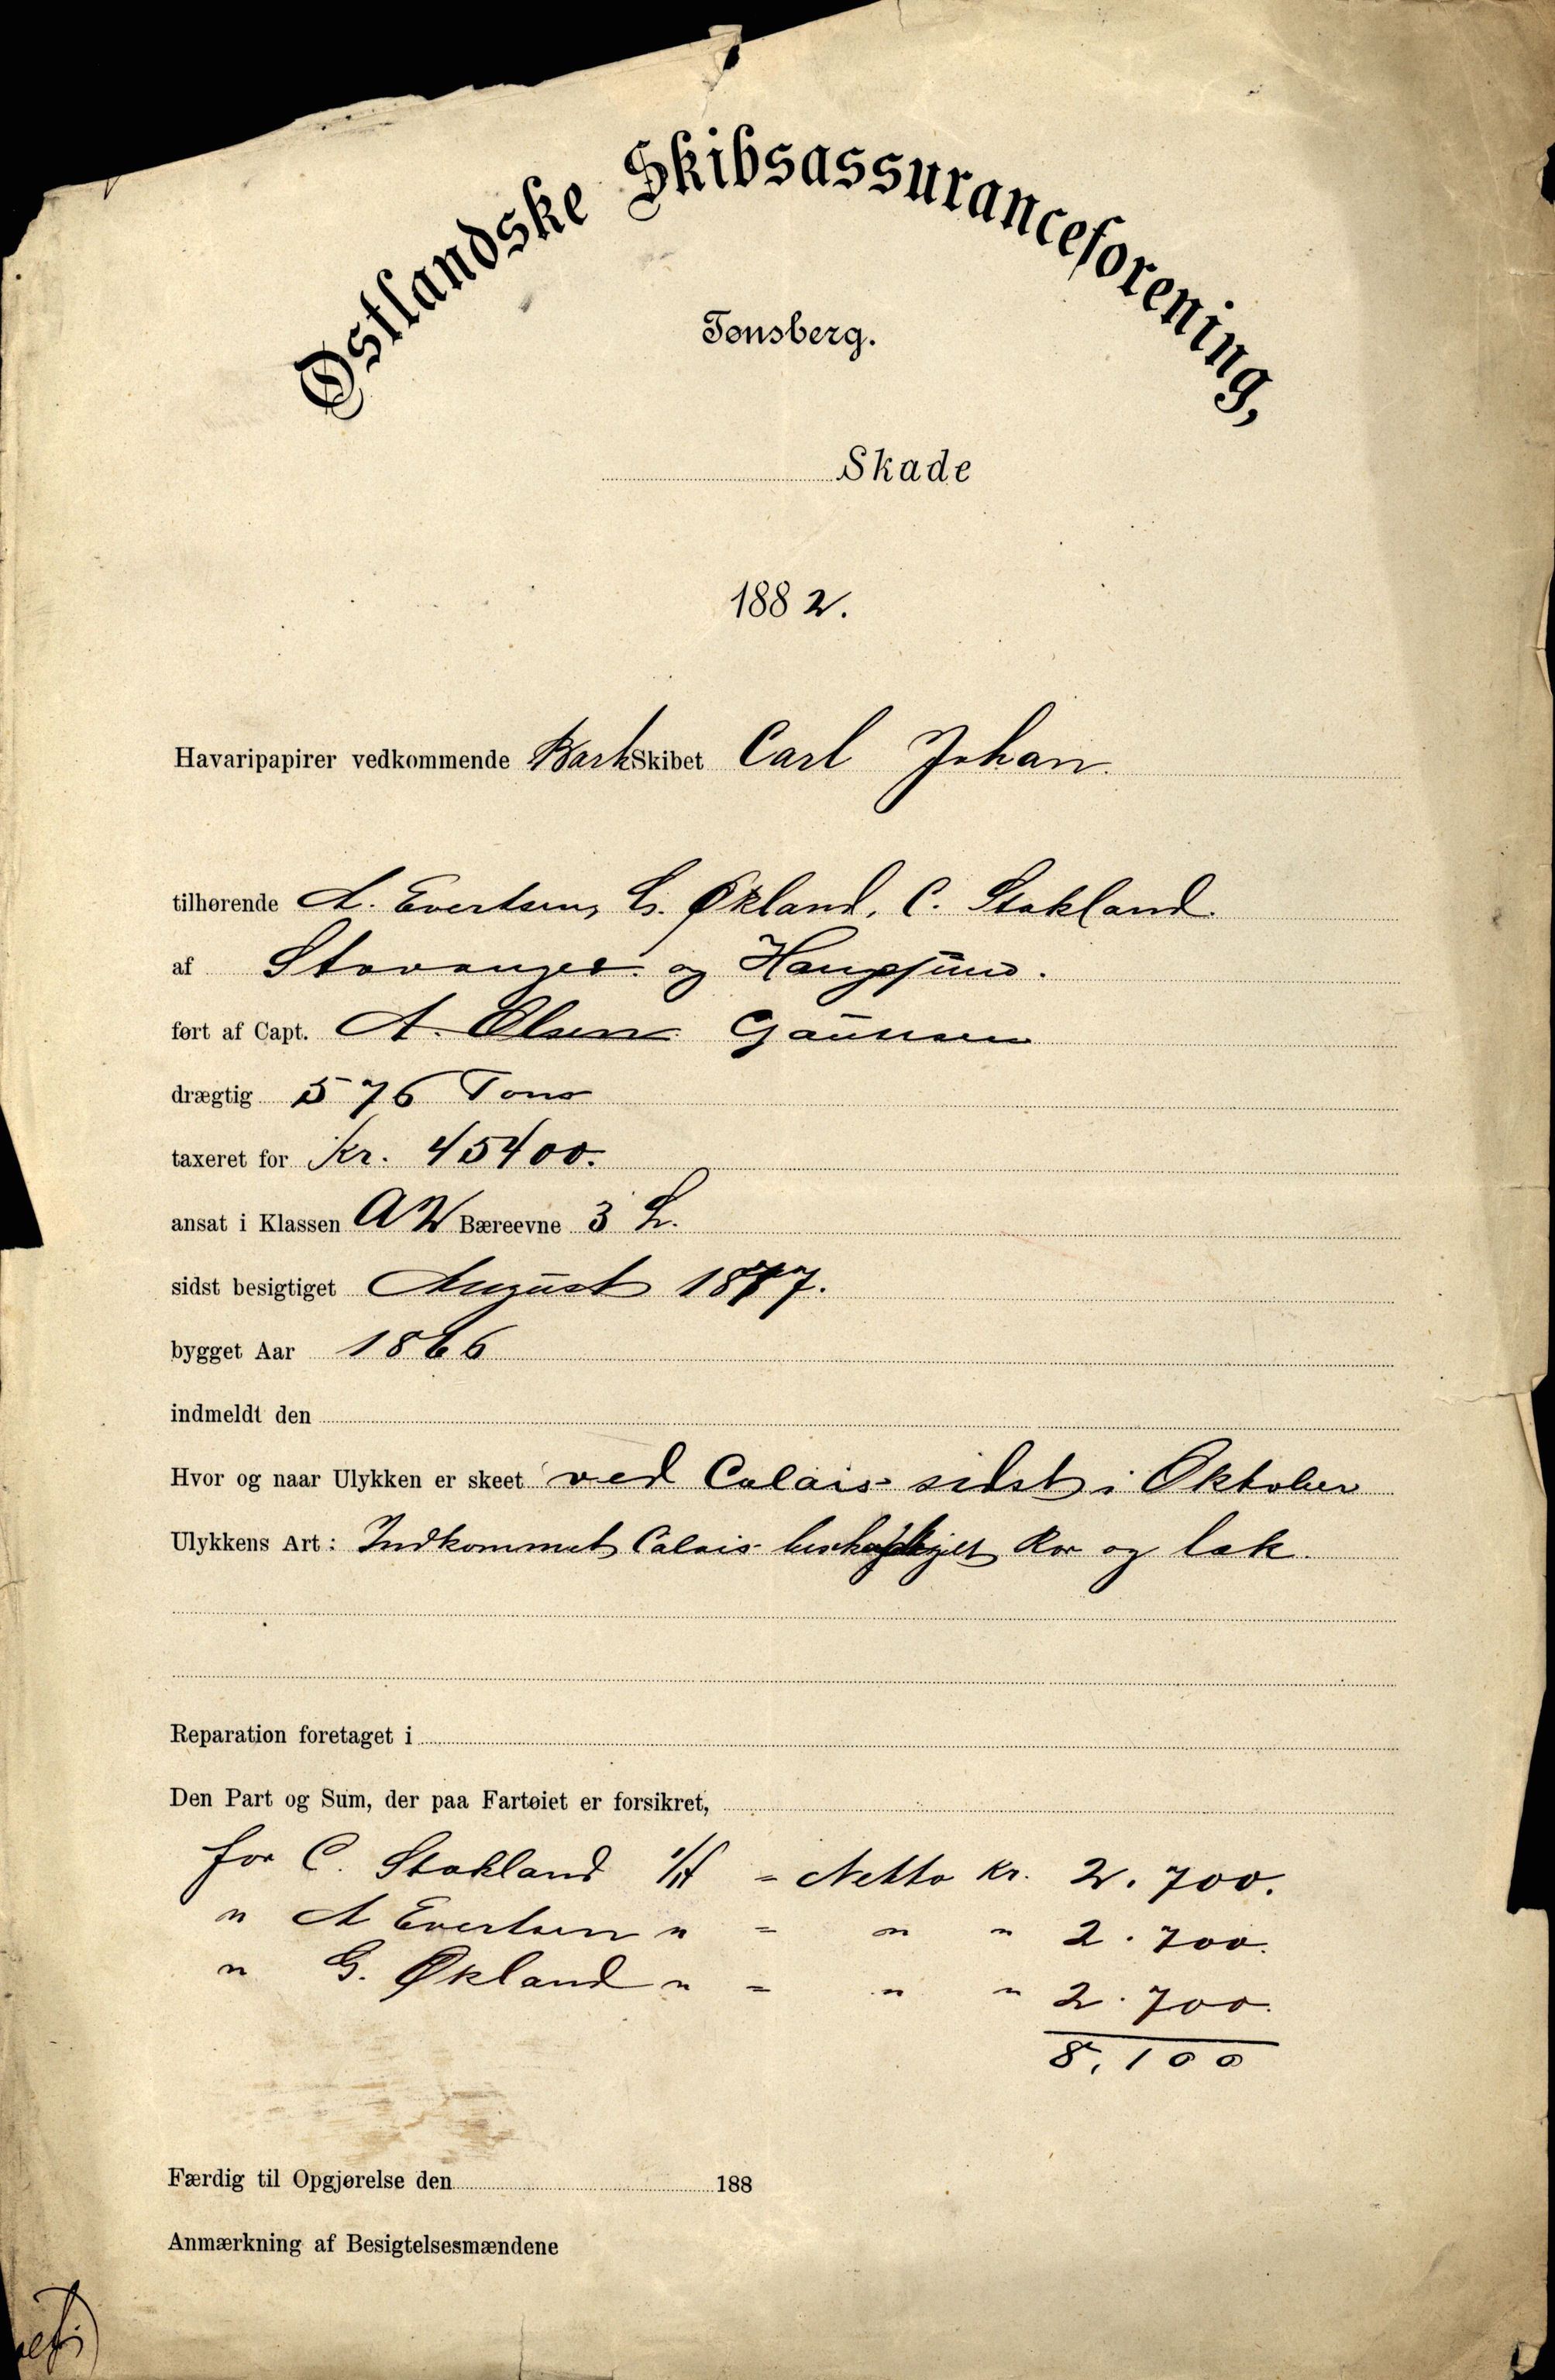 Østlandske Skibsassuranceforening,
Tønsberg.
Skade
1882.
Havaripapirer vedkommende Bark Skibet Carl Johan.
tilhørende A. Evertsen, G. Økland, C. Stokland.
af Stavanger og Haugesund.
ført af Capt. A. Olsen
drægtig 576 Tons
taxeret for Kr. 45400.
ansat i Klassen A2 Bæreevne 3 L.
sidst besigtiget August 1877.
bygget Aar 1866
indmeldt den
Hvor og naar Ulykken er skeet ved Calais sidst i Oktober
Ulykkens Art: Indkommet Calais Ror og læk.
Reparation foretaget i
Den Part og Sum, der paa Fartøiet er forsikret,
for C. Stokland = Netto Kr. 2.700.
" A Evertsen " = " " 2.700.
" G. Økland " = " " 2.700.
8,100
Færdig til Opgjørelse den 188
Anmærkning af Besigtelsesmændene